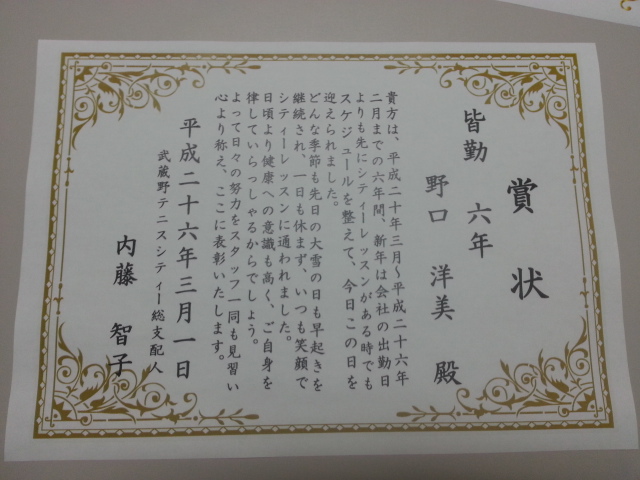 賞状
皆勤 六年
野口 洋美 殿
貴方は、平成二十年三月～平成二十六年
二月までの六年間、新年は会社の出勤日
よりも先にシティーレッスンがある時でも
スケジュールを整えて、今日この日を
迎えられました。
どんな季節も先日の大雪の日も早起きを
継続され、一日も休まず、いつも笑顔で
シティーレッスンに通われました。
日頃より健康への意識も高く、ご自身を
律していらっしゃるからでしょう。
よって日々の努力をスタッフ一同も見習い
心より称え、ここに表彰いたします。
平成二十六年三月一日
武蔵野テニスシティー総支配人
内藤 智子